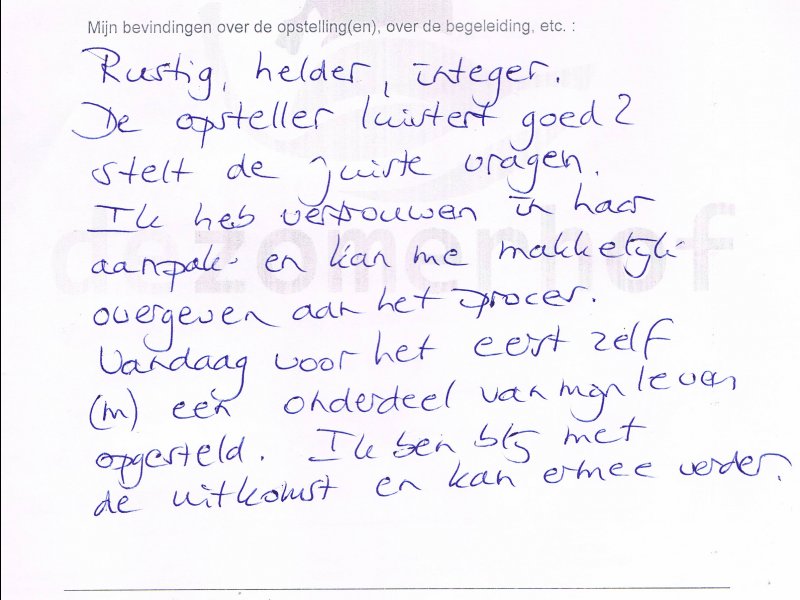 Mijn bevindingen over de opstelling(en), over de begeleiding, etc. :
Rustig, helder, integer.
De opsteller luistert goed &
stelt de juiste vragen.
Ik heb vertrouwen in haar
aanpak en kan me makkelijk
overgeven aan het proces.
Vandaag voor het eerst zelf
(m) een onderdeel van mijn leven
opgesteld. Ik ben blij met
de uitkomst en kan ermee verder.
dezomerhof